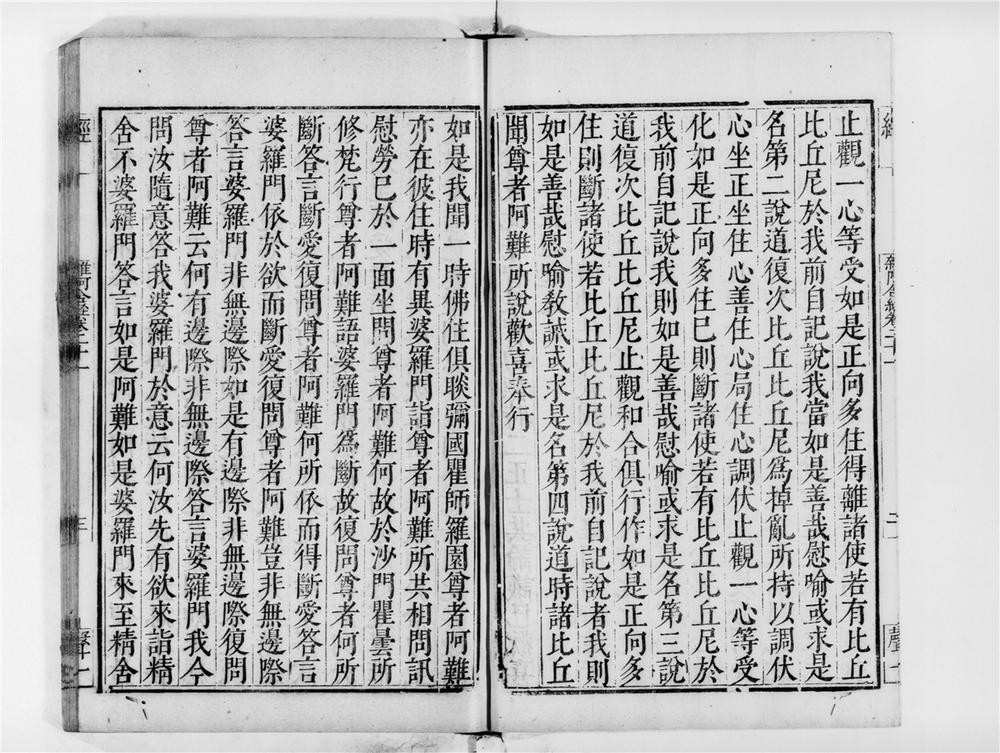 止觀一心等受如是正向多住得離諸使若有比丘
比丘尼於我前自記說我當如是善哉慰喻或求是
名第二說道復次比丘比丘尼為掉亂所持以調伏
心坐正坐住心善住心局住心調伏止觀一心等受
化如是正向多住已則斷諸使若有比丘比丘尼於
我前自記說我則如是善哉慰喻或求是名第三說
道復次比丘比丘尼止觀和合俱行作如是正向多
住則斷諸使若比丘比丘尼於我前自記說者我則
如是善哉慰喻教誡或求是名第四說道時諸比丘
聞尊者阿難所說歡喜奉行
如是我聞一時佛住俱睒彌國瞿師羅園尊者阿難
亦在彼住時有異婆羅門詣尊者阿難所共相問訊
慰勞已於一面坐問尊者阿難何故於沙門瞿曇所
修梵行尊者阿難語婆羅門為斷故復問尊者何所
斷答言斷愛復問尊者阿難何所依而得斷愛答言
婆羅門依於欲而斷愛復問尊者阿難豈非無邊際
答言婆羅門非無邊際如是有邊際非無邊際復問
尊者阿難云何有邊際非無邊際答言婆羅門我今
問汝隨意答我婆羅門於意云何汝先有欲來詣精
舍不婆羅門答言如是阿難如是婆羅門來至精舍
經
雜阿含經卷二十一
三
聲一